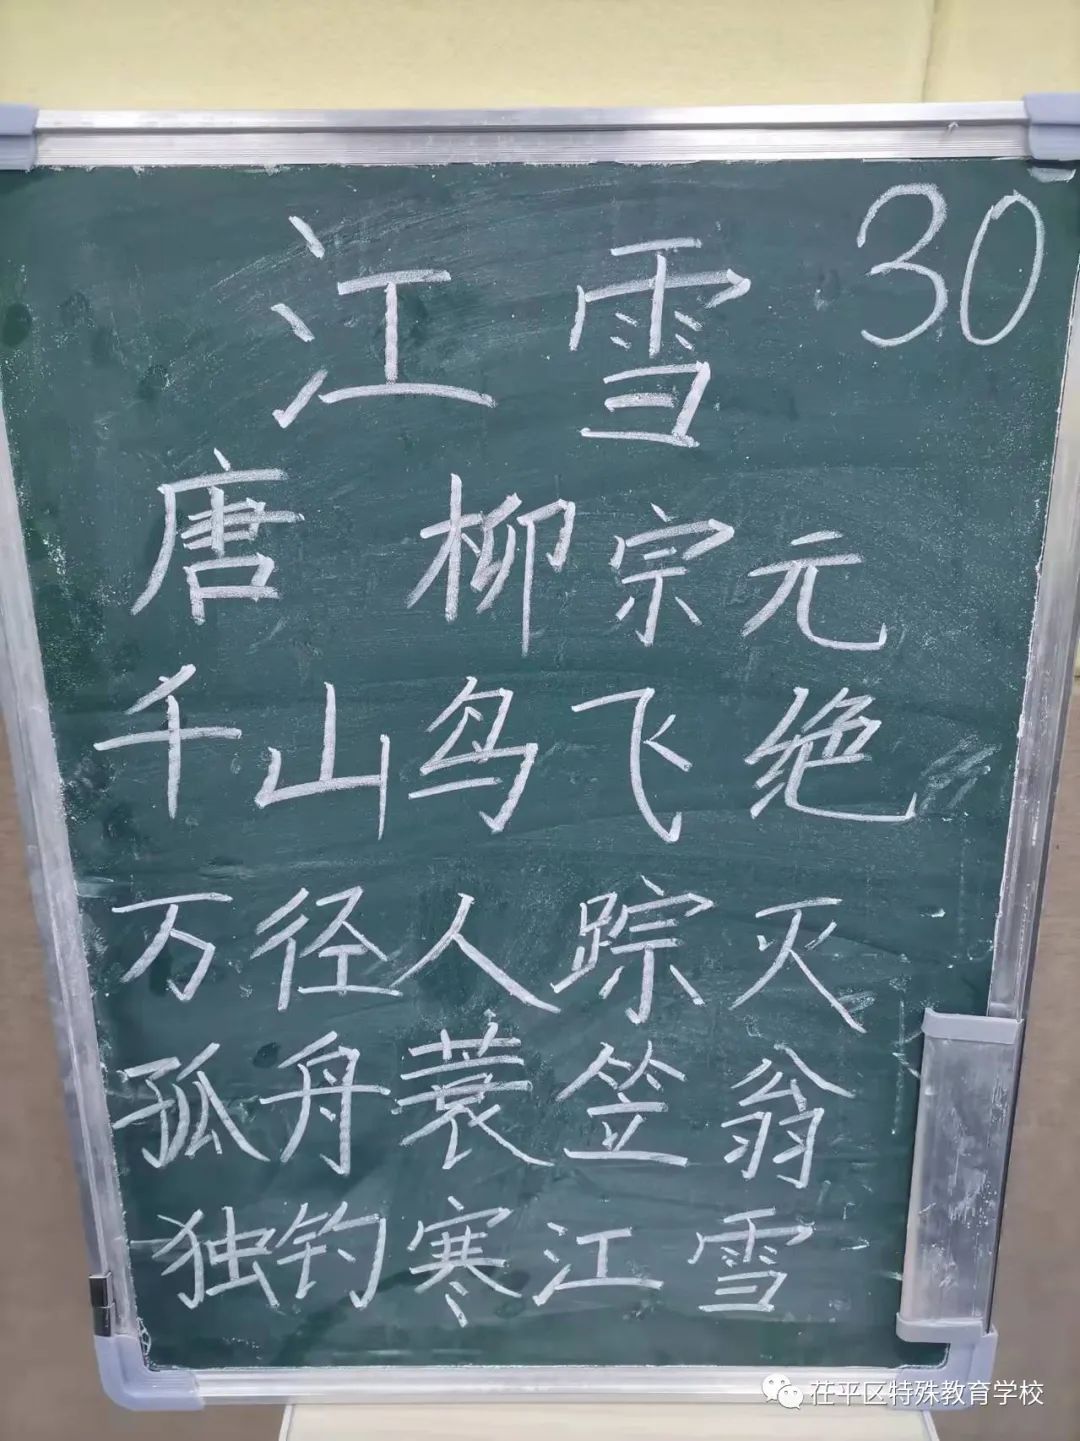 30
江雪
唐 柳宗元
千山鸟飞绝
万径人踪灭
孤舟蓑笠翁
独钓寒江雪
茌平区特殊教育学校